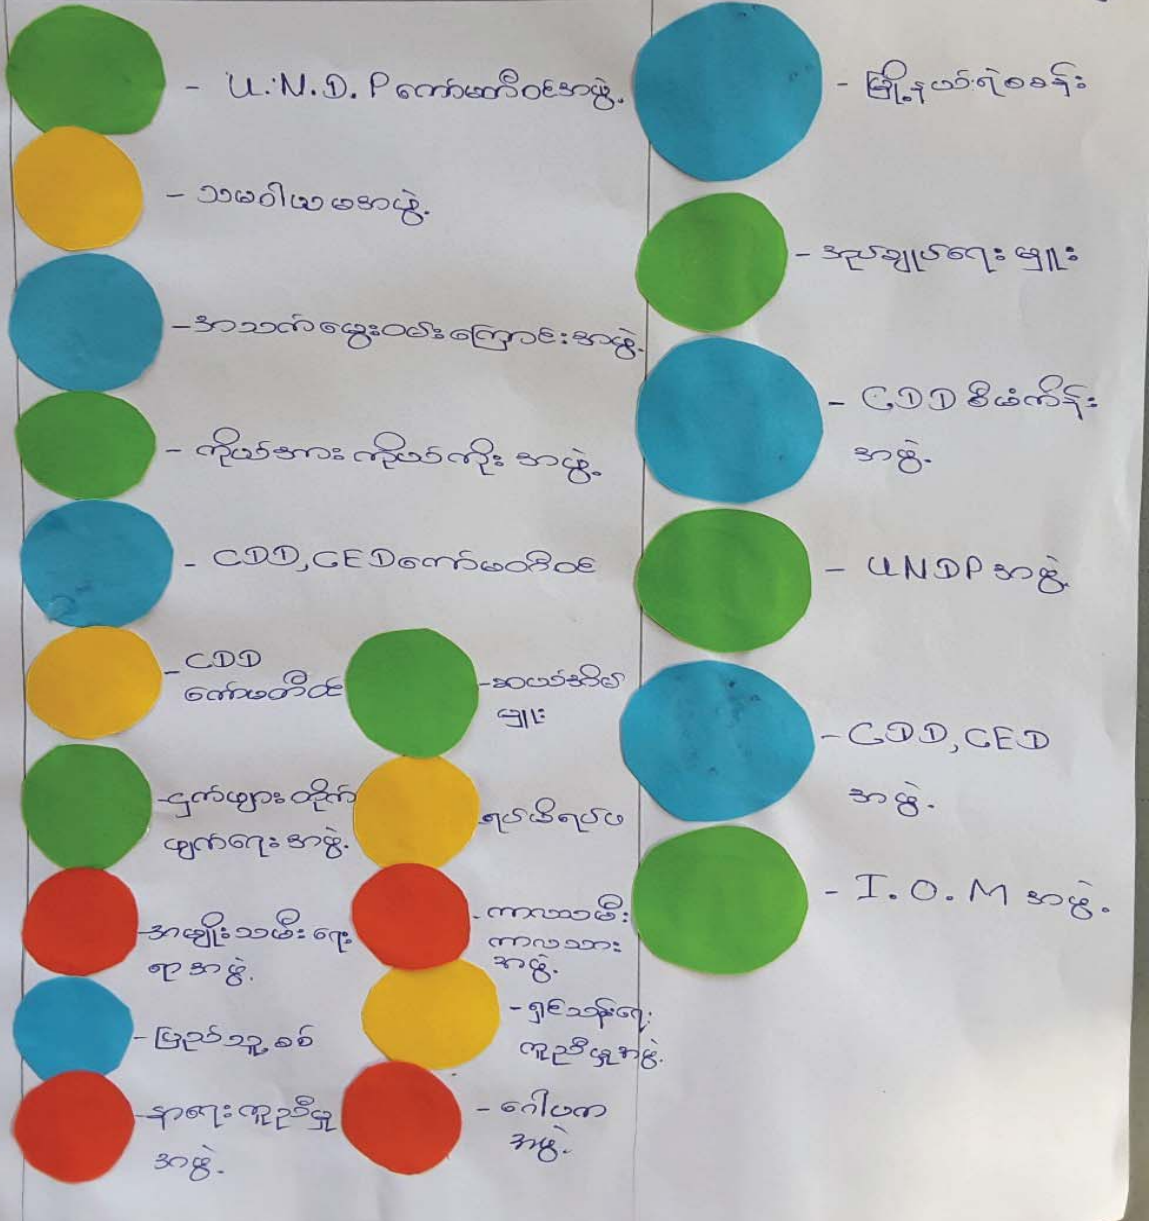 - U.N.D.P ကော်မတီဝင်အဖွဲ့.
- သမဝါယမအဖွဲ့.
- အသက်မွေးဝမ်းကြောင်းအဖွဲ့.
- ကိုယ်အားကိုယ်ကိုး အဖွဲ့.
- CDD, CED ကော်မတီဝင်
- CDD
ကော်မတီဝင်
- ငှက်ဖျားတိုက်
ဖျက်ရေးအဖွဲ့.
- အမျိုးသမီးရေး
ရာအဖွဲ့.
- ပြည်သူ့စစ်
- နာရေးကူညီမှု
အဖွဲ့.
- ဆယ်အိမ်
မှူး
- ရပ်မိရပ်ဖ
- ကာလသမီး
ကာလသား
အဖွဲ့.
- ရှင်သန်ရေး
ကူညီမှုအဖွဲ့.
- ဂေါပက
အဖွဲ့.
- မြို့နယ်ရဲစခန်း
- အုပ်ချုပ်ရေးမှူး
- CDD စီမံကိန်း
အဖွဲ့.
- UNDP အဖွဲ့
- CDD, CED
အဖွဲ့.
- I.O.M အဖွဲ့.